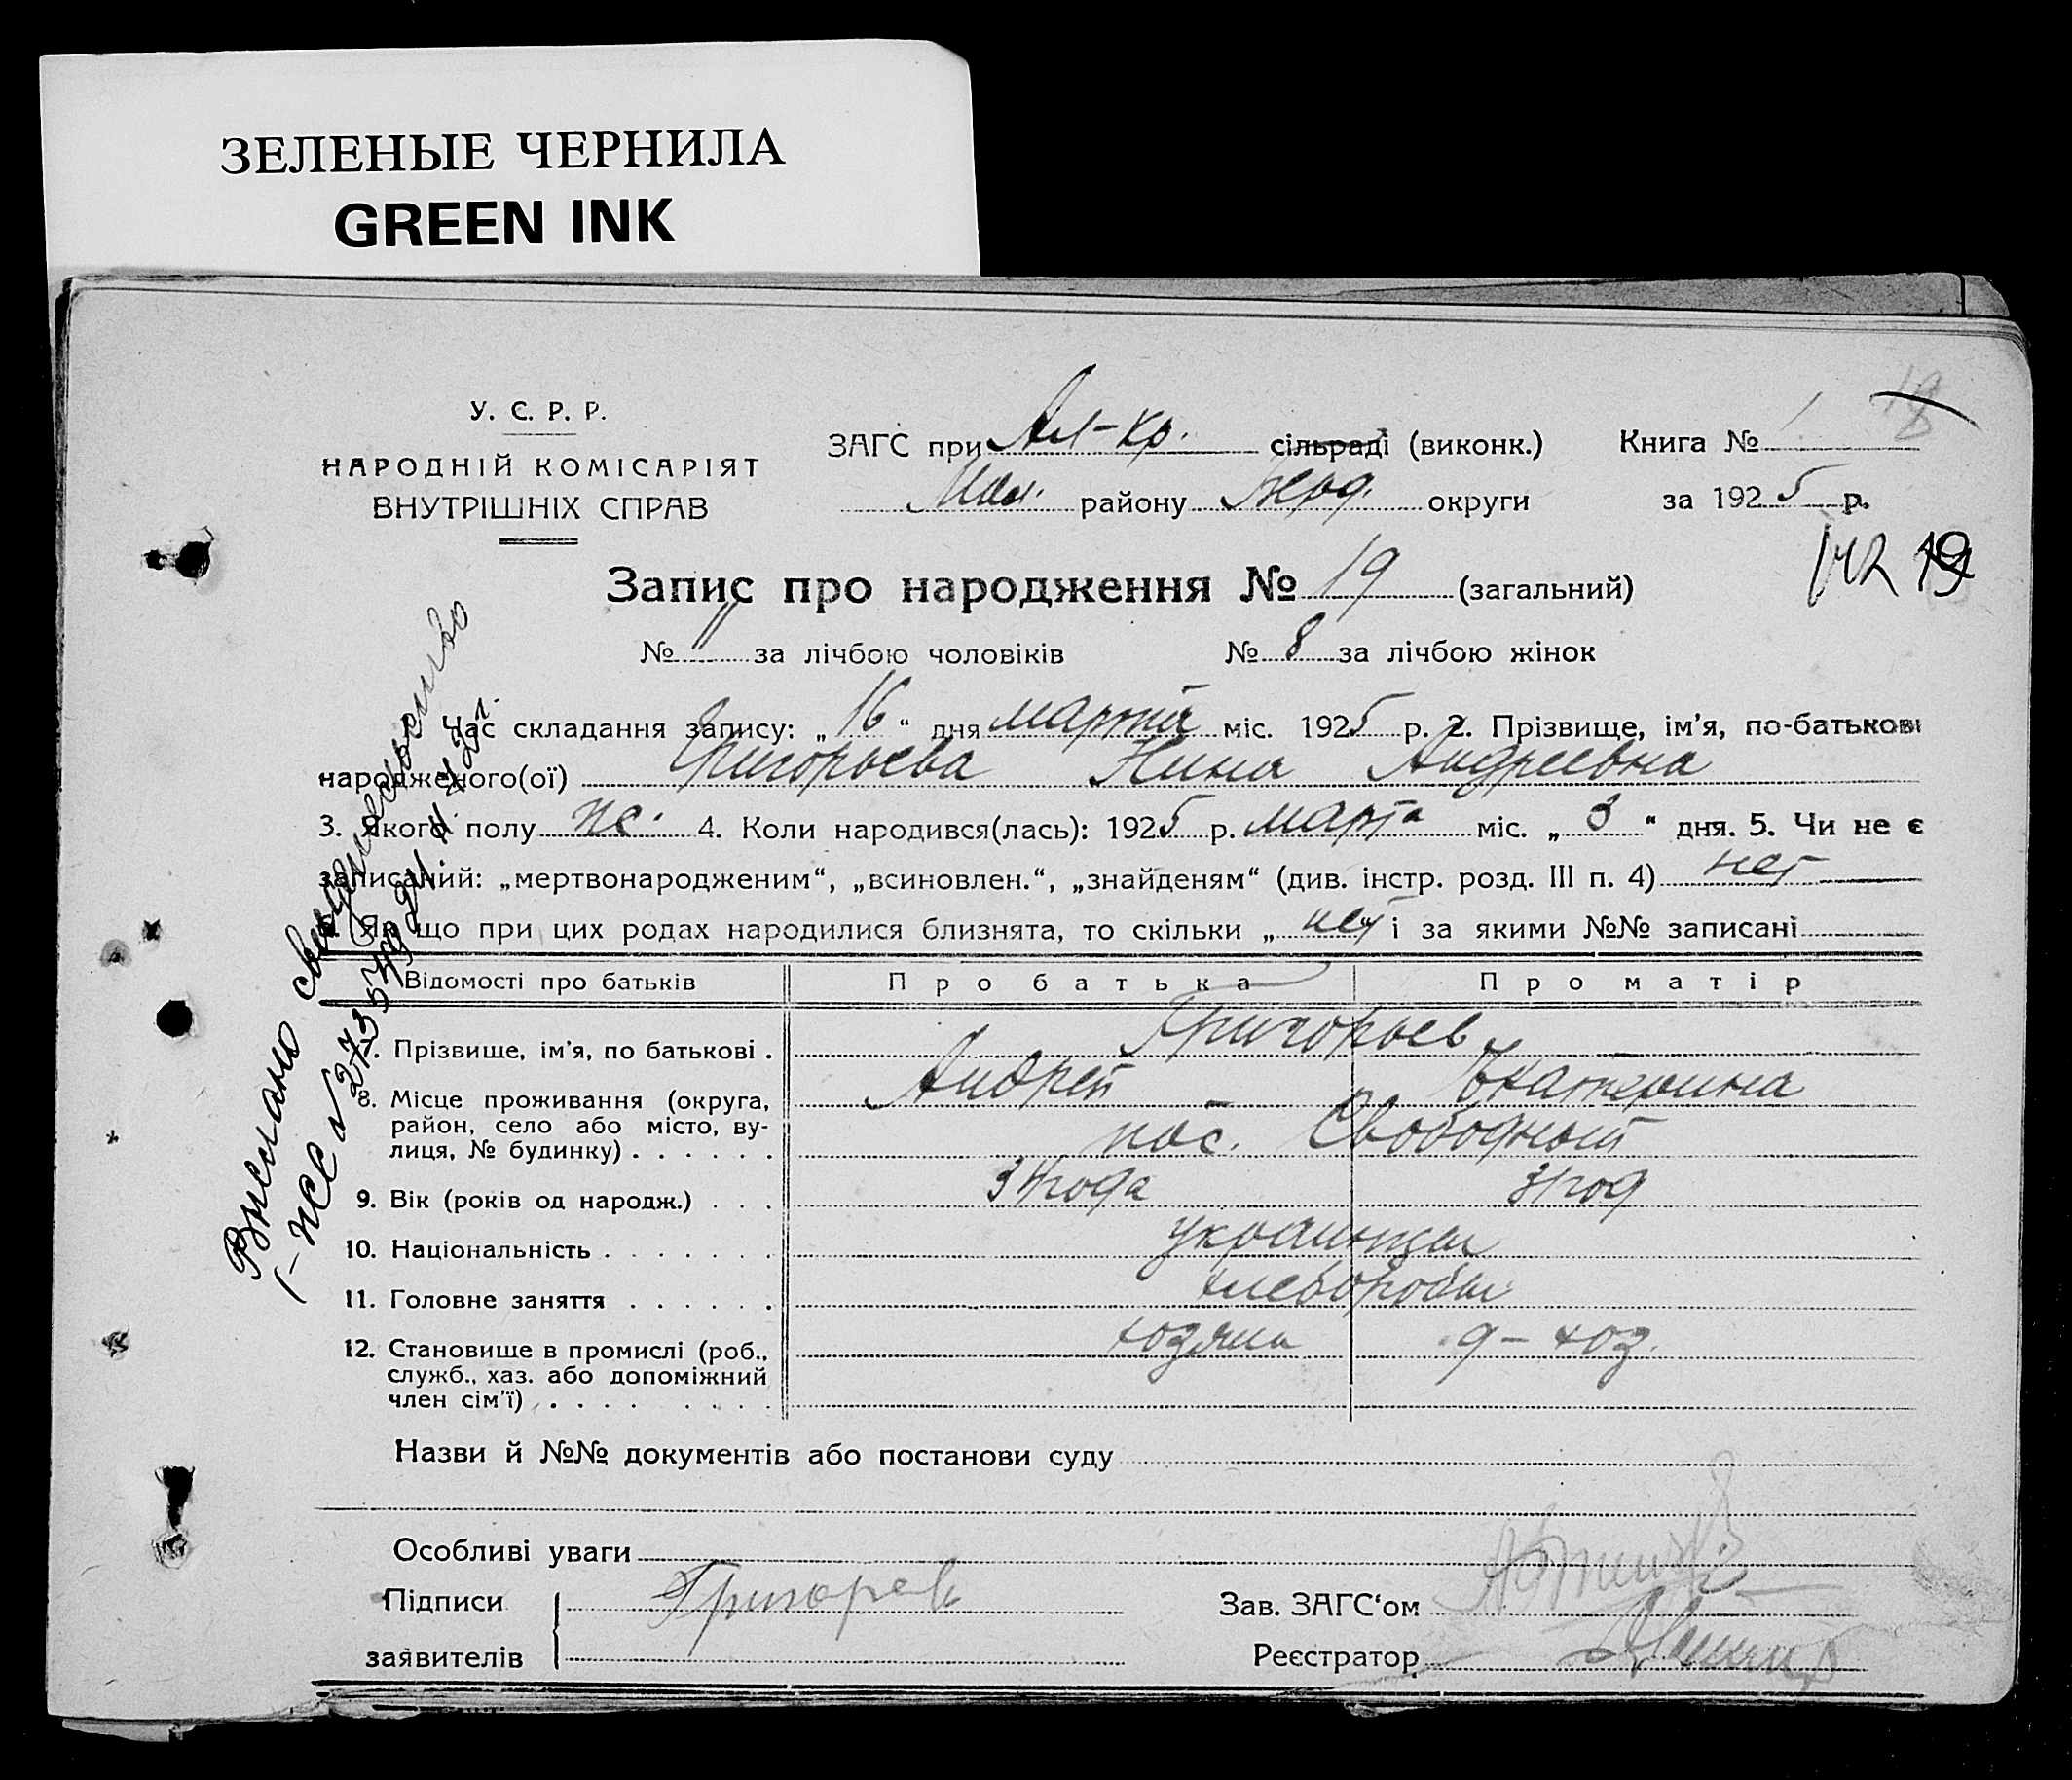 ЗЕЛЕНЫЕ ЧЕРНИЛА
GREEN INK
У. С. Р. Р.
НАРОДНІЙ КОМІСАРІЯТ
ВНУТРІШНІХ СПРАВ
ЗАГС при Ал-Кр. сільраді (виконк.) Книга № 1
18
района Мел. району Берд. округи за 1925 р.
19
Запис про народження № 19 (загальний)
№ " за лічбою чоловіків № 8 за лічбою жінок
Час складання запису: „16“ дня марта міс. 1925 р. 2. Прізвище, ім'я, по-батькові
народженого(ої) Григорьева Нина Андреевна
3. Якого полу ж. 4. Коли народився(лась): 1925 р. марта міс. „3“ дня. 5. Чи не є
записаний: „мертвонародженим“, „всиновлен.“, „знайденям“ (див. інстр. розд. III п. 4) нет
Як що при цих родах народилися близнята, то скільки „нет“ і за якими №№ записані
Відомості про батьків Про батька Про матір
7. Прізвище, ім'я, по батькові . Григорьев
Андрей Екатерина
8. Місце проживання (округа,
район, село або місто, ву-
лиця, № будинку) . . . . . . пос. Свободный
9. Вік (років од народж.) . . . 34 года 31 год
10. Національність . . . . . . . украинцы
11. Головне заняття . . . . . . хлеборобы
12. Становище в промислі (роб.,
служб., хаз. або допоміжний
член сім'ї) . . . . . . . . хозяин д-хоз.
Назви й №№ документів або постанови суду
Особливі уваги
Підписи
заявителів
Григорев
Зав. ЗАГС‘ом
Реєстратор
Выслано свидетельство